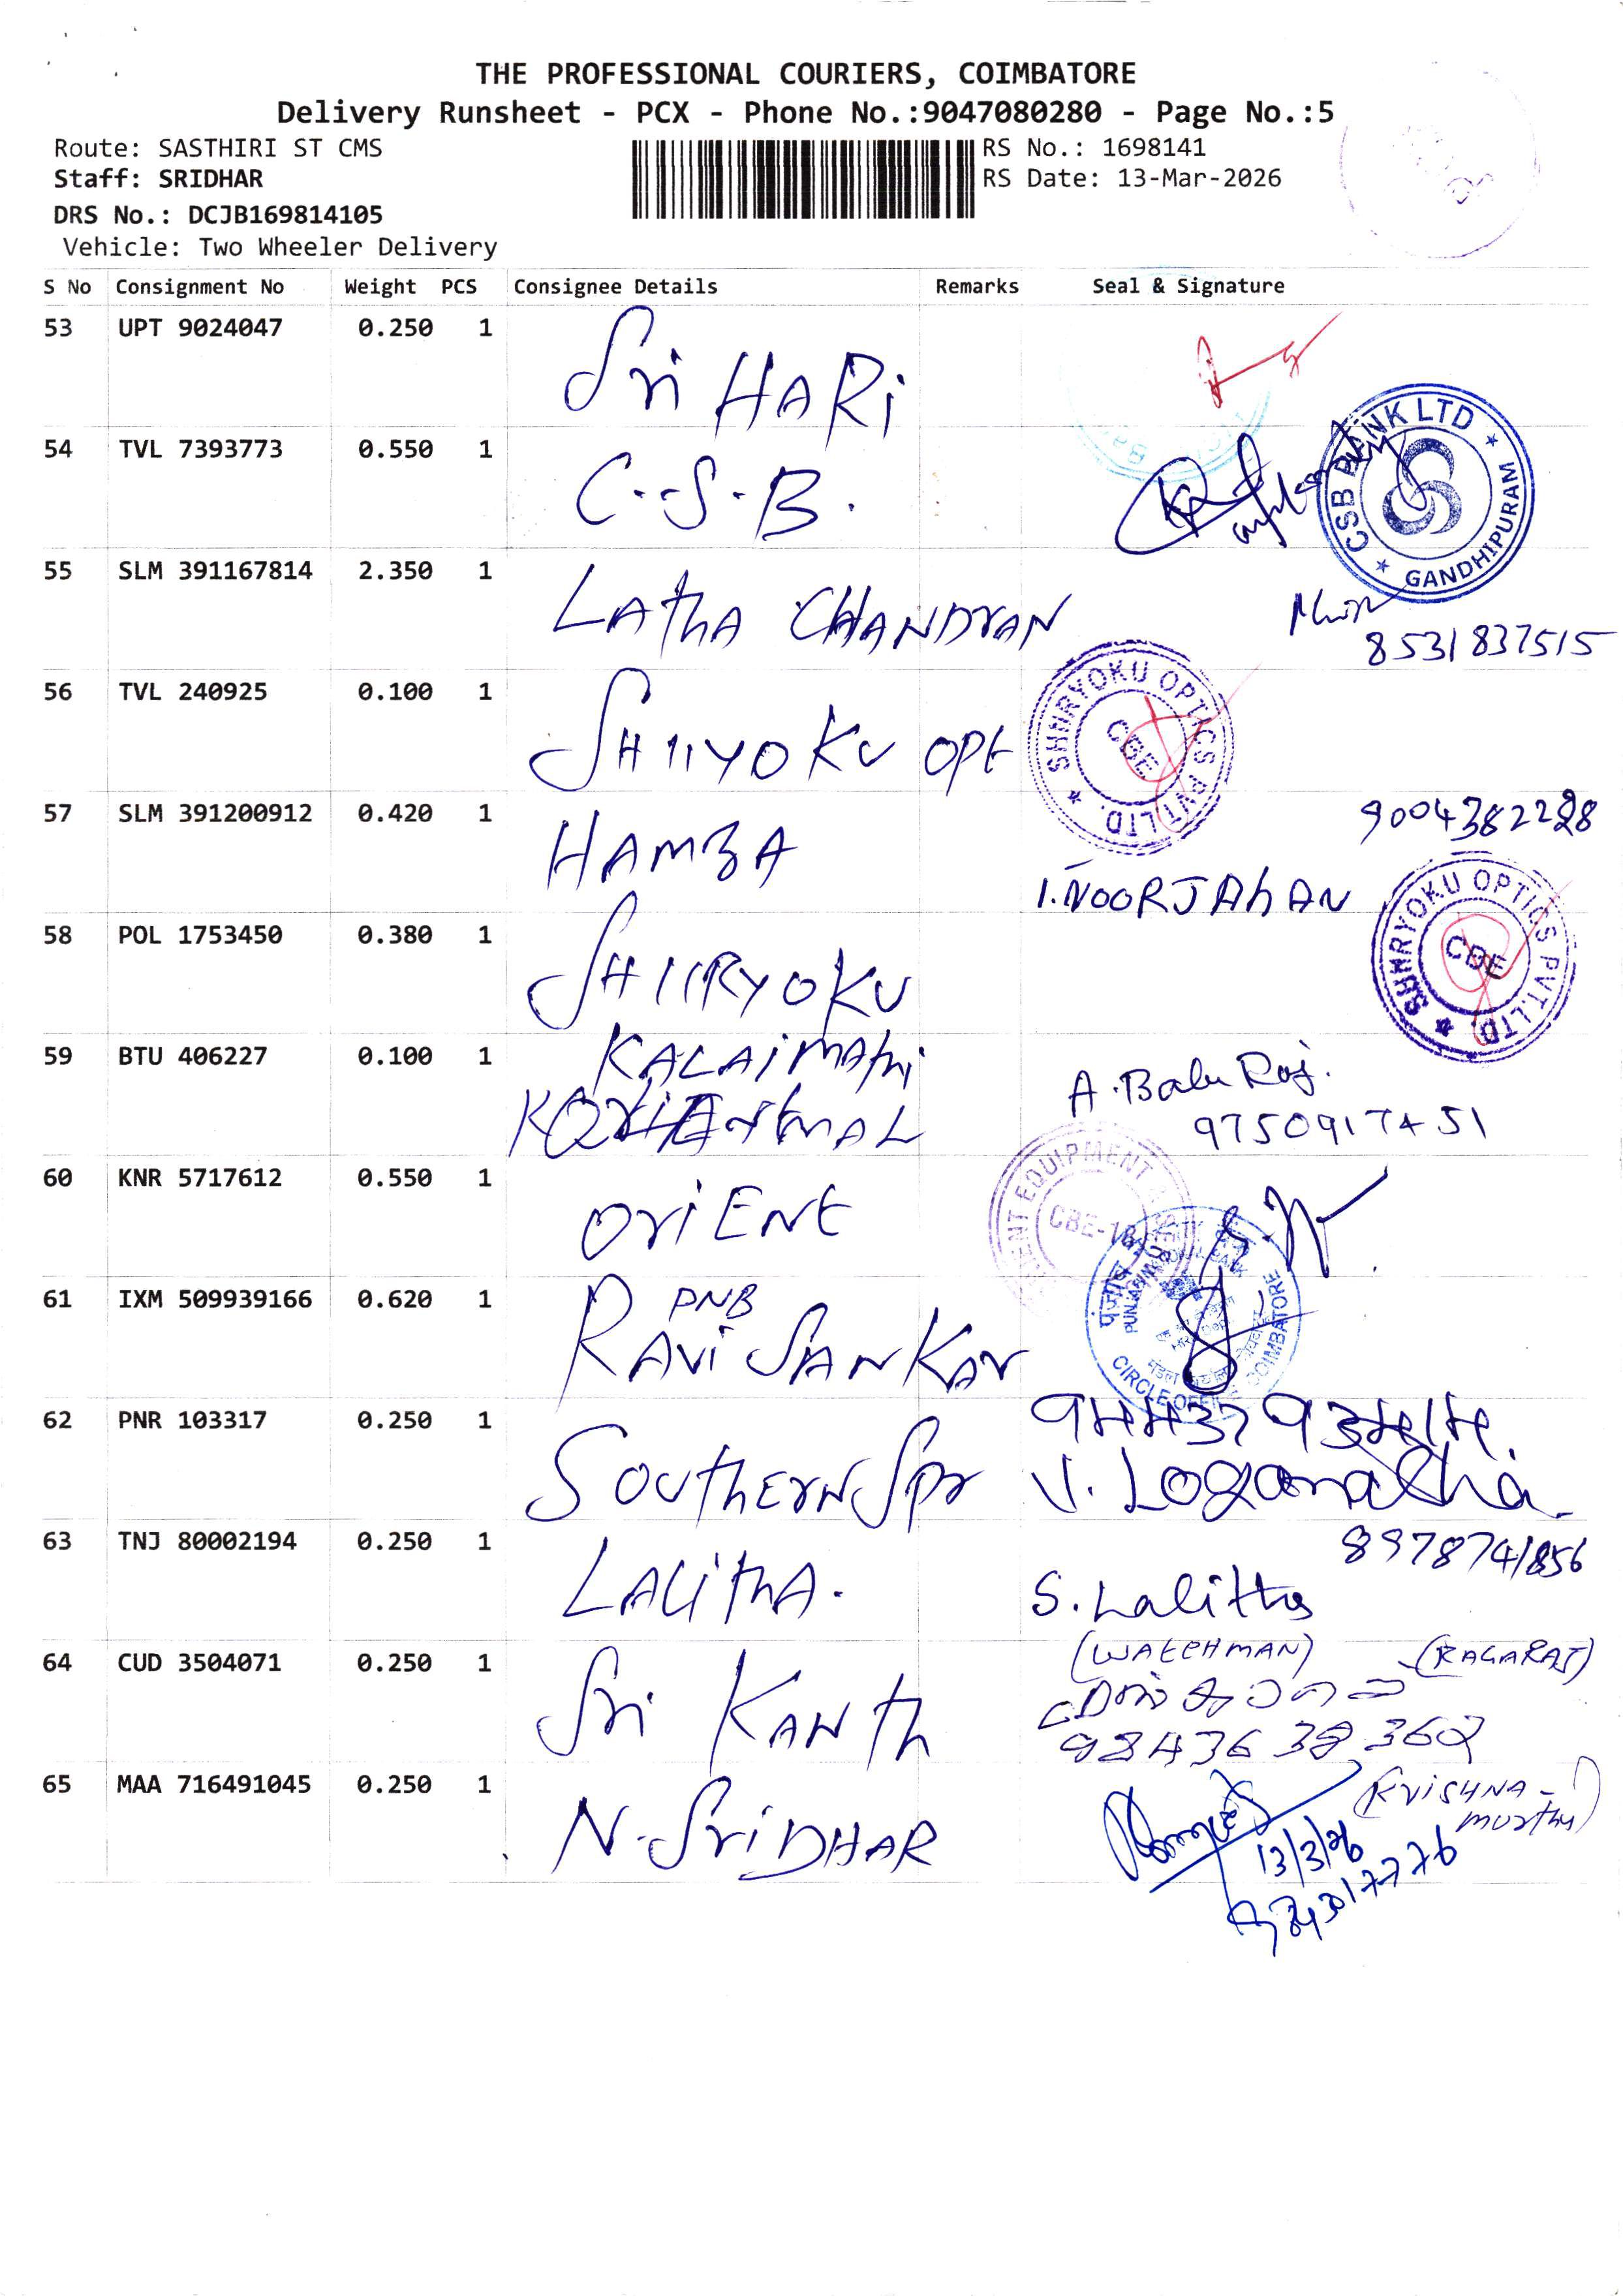 THE PROFESSIONAL COURIERS, COIMBATORE
Delivery Runsheet - PCX - Phone No.:9047080280 - Page No.:5
Route: SASTHIRI ST CMS
RS No.: 1698141
Staff: SRIDHAR
RS Date: 13-Mar-2026
DRS No.: DCJB169814105
Vehicle: Two Wheeler Delivery
S No Consignment No Weight PCS Consignee Details Remarks Seal & Signature
53 UPT 9024047 0.250 1 Sri HARi
54 TVL 7393773 0.550 1 C.S.B.
CSB BANK LTD
GANDHIPURAM
55 SLM 391167814 2.350 1 LAthA CHANDrAN
8531837515
56 TVL 240925 0.100 1 SHIIYOKU OPt
SHHRYOKU OPTICS PVT.LTD.
CBE
57 SLM 391200912 0.420 1 HAMZA
9004382228
I.NOORJAhAN
58 POL 1753450 0.380 1 SHIIRYOKU
SHHRYOKU OPTICS PVT.LTD.
CBE
59 BTU 406227 0.100 1 KALAiMAthi
A.Babu Raj.
9750917451
60 KNR 5717612 0.550 1 OriENt
EQUIPMENT
CBE-18
61 IXM 509939166 0.620 1 PNB
RAVi SANKAr
CIRCLE OFFICE COIMBATORE
62 PNR 103317 0.250 1 SOUthErN Spr
V. Loganatha
63 TNJ 80002194 0.250 1 LALithA.
8978741856
S. Lalitha
64 CUD 3504071 0.250 1 Sri KANth
(WATCHMAN) (RAGARAJ)
9843638362
65 MAA 716491045 0.250 1 N.SriDHAR
(KriSHNA-
murthy)
13/3/26